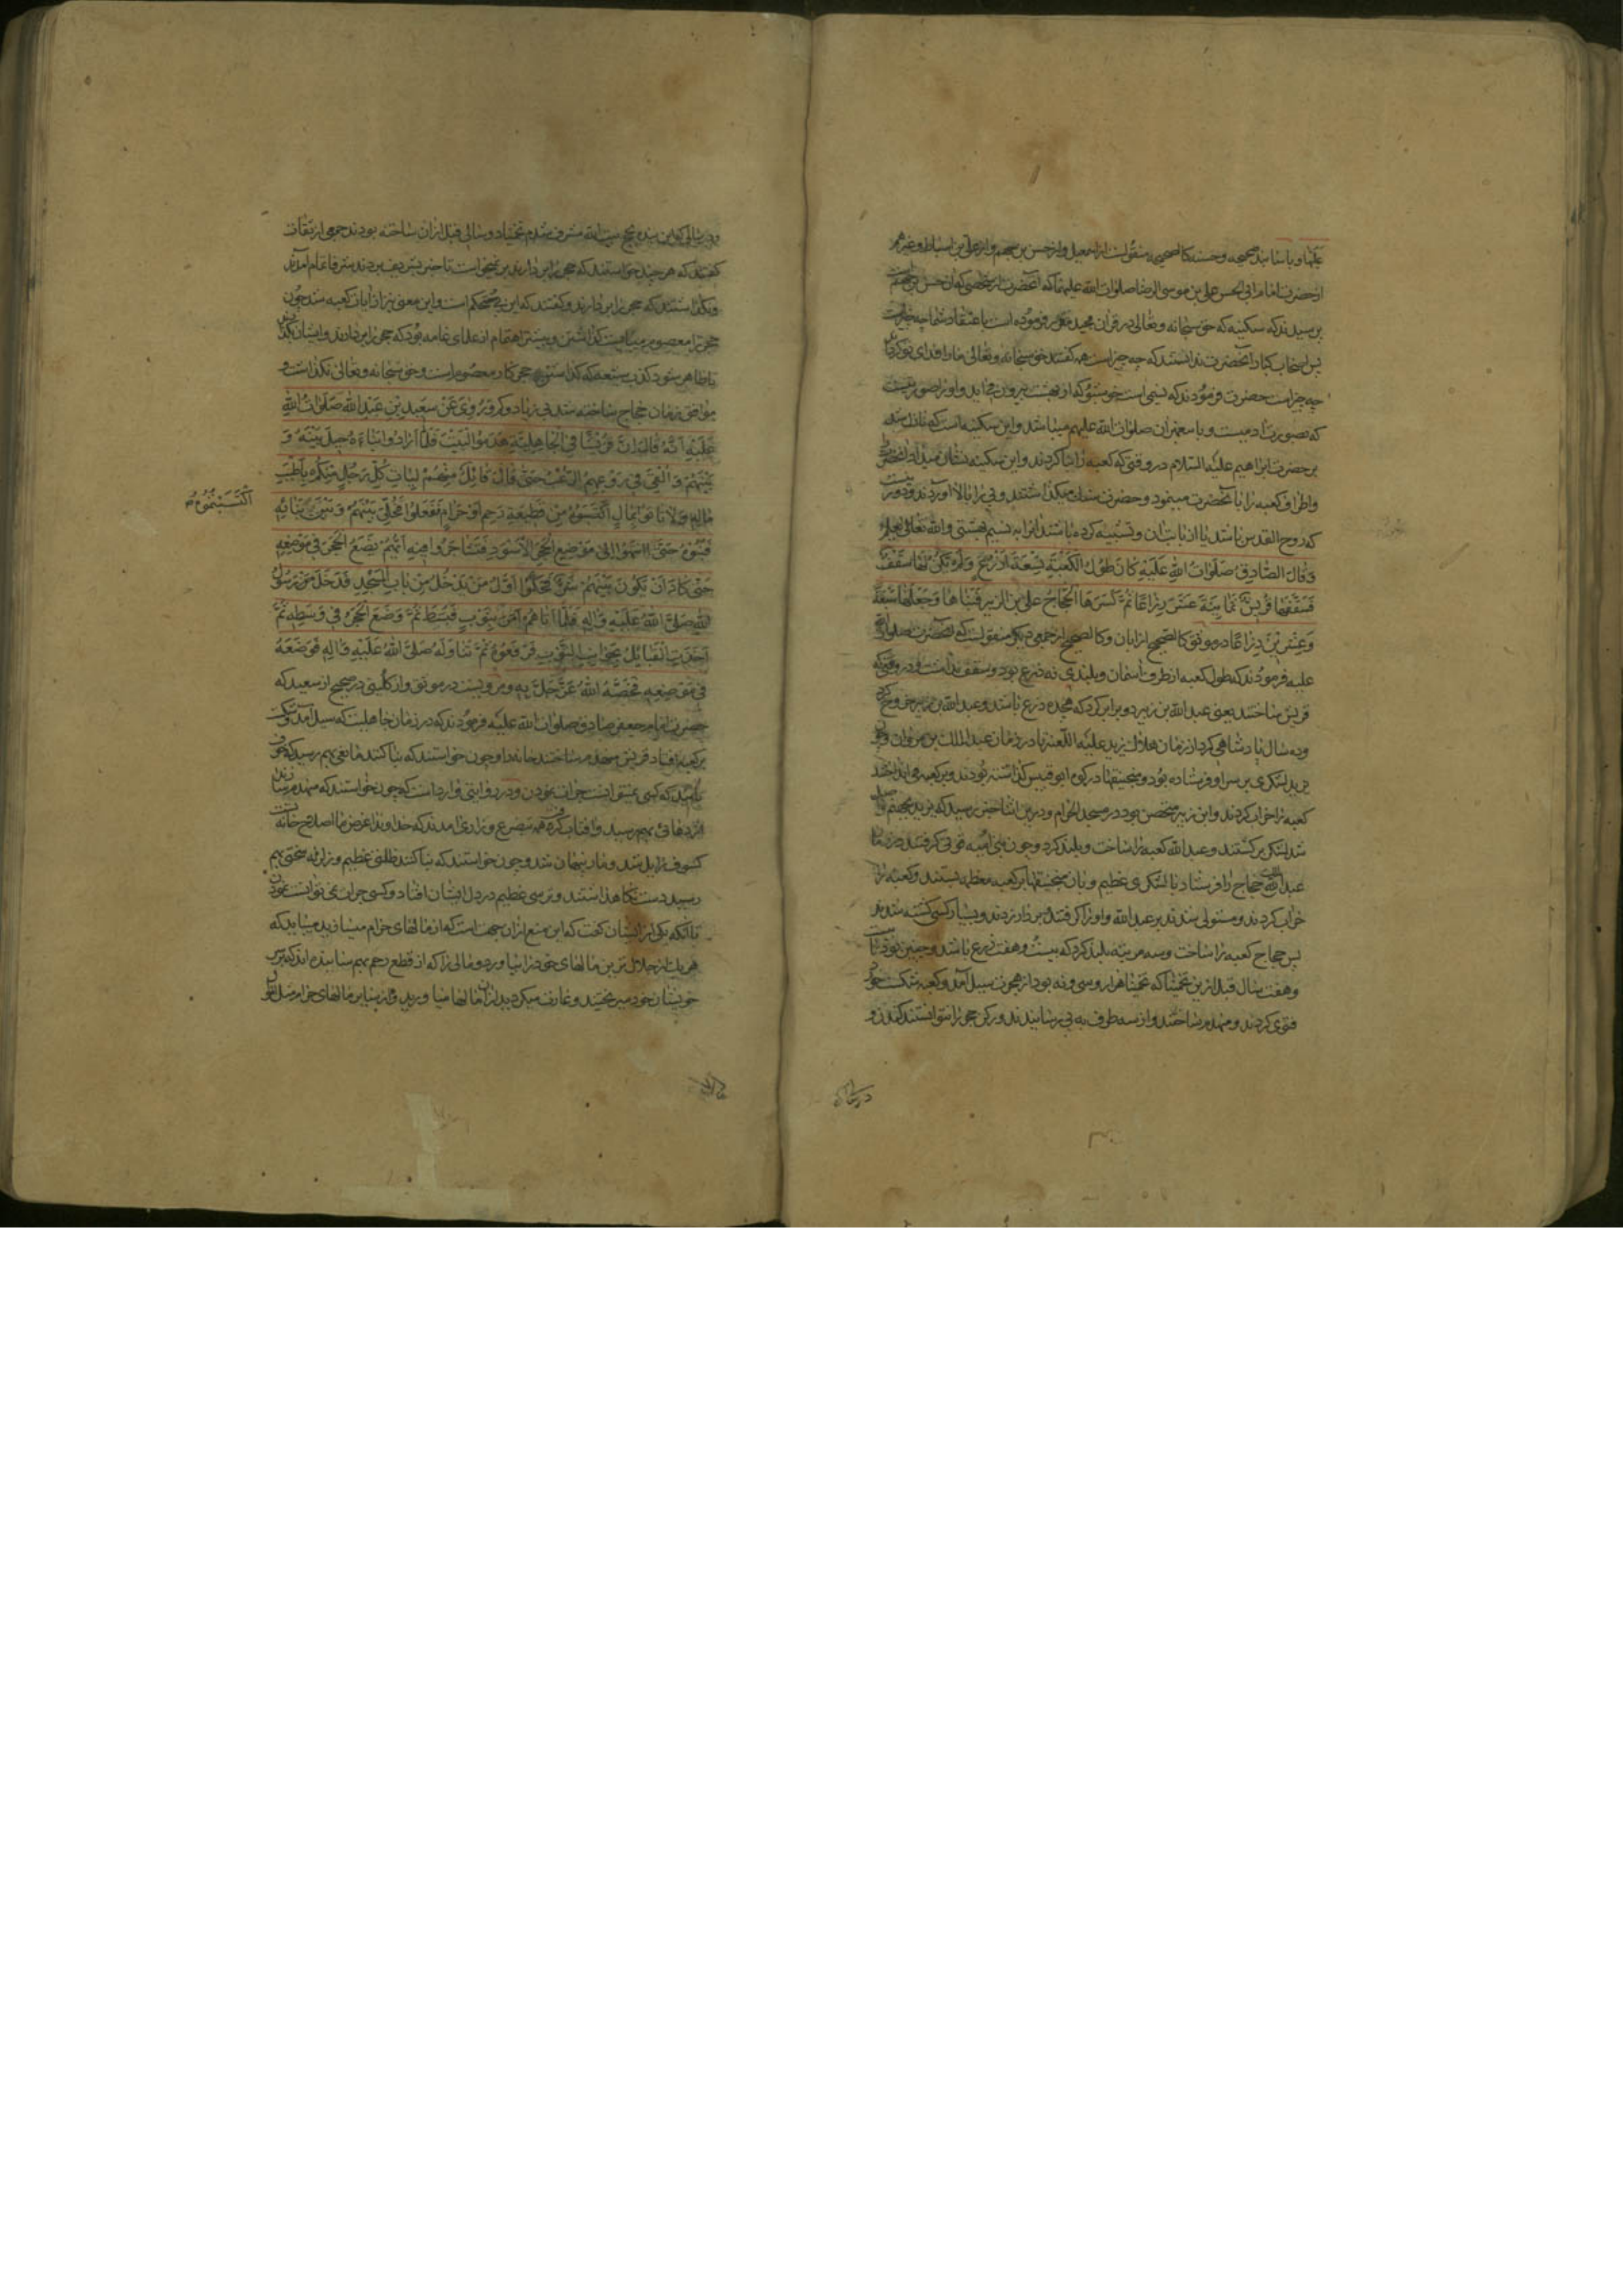 علیها و باسانید صحیحه و حسنه کالصحیحه منقولست از اسمعیل و از حسن بن جهم و از علی بن اسباط و غیرهم
از حضرت امام ابی الحسن علی بن موسی الرضا صلوات الله علیهما که آنحضرت از شخصی که آن حسن بن جهمست
پرسیدند که سکینه که حق سبحانه و تعالی در قرآن مجید مقرر فرموده است باعتقاد شما چه چیزست
پس اصحاب کبار آنحضرت ندانستند که چه چیز است همه گفتند حق سبحانه و تعالی ما را فدای تو کرداند
چه چیز است حضرت فرمودند که نسیمی است خوشبو که از بهشت بیرون می آید و او را صورتیست
که بصورت آدمیست و با پیغمبران صلوات الله علیهم میباشد و این سکینه است که نازل شد
بر حضرت ابراهیم علیه السلام در وقتی که کعبه را بنا کردند و این سکینه نشان میداد آنحضرت را
و اطراف کعبه را بآنحضرت مینمود و حضرت ستون میگذاشتند و پی را بالا آوردند و دور نیست
که روح القدس باشد یا از بابت آن و تشبیه کرده باشند آنرا به نسیم بهشتی والله تعالی یعلم
وَقالَ الصّادِقُ صَلَواتُ اللهِ عَلَیْهِ کانَ طُولُ الکَعْبَةِ تِسْعَةَ اَذْرُعٍ وَلَمْ یَکُنْ لَها سَقْفٌ
فَسَقَّفَها قُرَیْشٌ ثَمانِیَةَ عَشَرَ ذِراعاً ثُمَّ کَسَرَهَا الحَجّاجُ عَلَی ابْنِ الزُّبَیْرِ فَبَناها وَجَعَلَها سَبْعَةً
وَعِشْرِینَ ذِراعاً در موثق کالصحیح از ابان و کالصحیح از جمعی دیگر منقولست که آنحضرت صلوات الله
علیه فرمودند که طول کعبه از طرف آسمان و بلندی نه ذرع بود و سقف نداشت و در وقتی که
قریش ساختند یعنی عبد الله بن زبیر دو برابر کرد که هجده ذرع باشد و عبد الله بن زبیر خروج کرد
و ده سال پادشاهی کرد از زمان هلاک یزید علیه اللعنه تا در زمان عبد الملک بن مروان و چون
یزید لشکری بر سر او فرستاده بود و منجنیقها در کوه ابو قبیس گذاشته بودند و بر کعبه می انداختند
کعبه را خراب کردند و ابن زبیر متحصن بود در مسجد الحرام و درین اثنا خبر رسید که یزید بجهنم واصل
شد لشکر برگشتند و عبد الله کعبه را ساخت و بلند کرد و چون بنی امیه قوتی گرفتند در زمان
عبد الملک حجاج را فرستاد با لشکری عظیم و بآن منجنیقها بر کعبه معظمه بستند و کعبه را
خراب کردند و مستولی شدند بر عبد الله و او را گرفتند بر دار زدند و بسیار کسی کشته شدند
پس حجاج کعبه را ساخت و سه مرتبه بلند کرد که بیست و هفت ذرع باشد و چنین بود تا بیست
و هفت سال قبل ازین تخمیناً که تخمیناً هزار و سی و نه بود از هجرت سیل آمد و کعبه شکست خورد
فتوی کردند و منهدم ساختند و از سه طرف به پی رسانیدند و رکن حجر را نتوانستند کندن و
در سالی
در سالی که این بنده بحج بیت الله مشرف شدم تخمیناً دو سالی قبل ازان ساخته بودند جمعی از ثقات
گفتند که هر چند خواستند که حجر را بردارند برنمیخواست تا خبر بشریف بردند شرفا تمام آمدند
و نگذاشتند که حجر را بردارند و گفتند که این پی محکم است و این معنی نیز از آیات کعبه شد چون
حجر را معصوم میبایست گذاشتن و بیشتر اهتمام از علمای عامه بود که حجر را بردارند و ایشان بگذارند
تا ظاهر شود کذب شیعه که گذاشتن حجر کار معصوم است و حق سبحانه و تعالی نگذاشت و
موافق زمان حجاج ساخته شد بی زیاد و کم وَرُوِیَ عَنْ سَعِیدِ بْنِ عَبْدِ اللهِ صَلَواتُ اللهِ
عَلَیْهِ اَنَّهُ قالَ اِنَّ قُرَیْشاً فِی الْجاهِلِیَّةِ هَدَمُوا الْبَیْتَ فَلَمّا اَرادُوا بِناءَهُ حِیلَ بَیْنَهُ وَ
بَیْنَهُمْ وَاُلْقِیَ فِی رُوعِهِمُ الرُّعْبُ حَتّی قالَ قائِلٌ مِنْهُمْ لِیَأْتِ کُلُّ رَجُلٍ مِنْکُمْ بِاَطْیَبِ
مالِهِ وَلا تَأتُوا بِمالٍ اکْتَسَبْتُمُوهُ مِنْ قَطِیعَةِ رَحِمٍ اَوْ حَرامٍ فَفَعَلُوا فَخُلِّیَ بَیْنَهُمْ وَبَیْنَ بِنائِهِ
اکْتَسَبْتُمُوهُ
فَبَنَوْهُ حَتّی انْتَهَوْا اِلی مَوْضِعِ الْحَجَرِ الاَسْوَدِ فَتَشاجَرُوا فِیهِ اَیُّهُمْ یَضَعُ الْحَجَرَ فِی مَوْضِعِهِ
حَتّی کادَ اَنْ یَکُونَ بَیْنَهُمْ شَرٌّ فَحَکَّمُوا اَوَّلَ مَنْ یَدْخُلُ مِنْ بابِ الْمَسْجِدِ فَدَخَلَ رَسُولُ
اللهِ صَلَّی اللهُ عَلَیْهِ وَآلِهِ فَلَمّا اَتاهُمْ اَمَرَ بِثَوْبٍ فَبُسِطَ ثُمَّ وَضَعَ الْحَجَرَ فِی وَسَطِهِ ثُمَّ
اَخَذَتِ القَبائِلُ بِجَوانِبِ الثَّوْبِ فَرَفَعُوهُ ثُمَّ تَناوَلَهُ صَلَّی اللهُ عَلَیْهِ وَآلِهِ فَوَضَعَهُ
فِی مَوْضِعِهِ فَخَصَّهُ اللهُ عَزَّ وَجَلَّ بِهِ و مرویست در موثق و از کلینی در صحیح از سعید که
حضرت امام جعفر صادق صلوات الله علیه فرمودند که در زمان جاهلیت که سیل آمد و شکست
بر کعبه افتاد قریش منهدم ساختند خانه را و چون خواستند که بنا کنند مانعی بهم رسید که خوف
که کسی نمیتوانست جرأت نمودن و در روایتی وارد است که چون خواستند که منهدم سازند
اژدهائی بهم رسید و آفتاب گرفت همه بتضرع و زاری آمدند که خداوندا غرض ما اصلاح خانه تست
کسوف زایل شد و مار پنهان شد و چون خواستند که بنا کنند ظلمتی عظیم و زلزله سختی بهم
رسید دست نگاهداشتند و ترسی عظیم در دل ایشان افتاد و کسی جرأت نمی توانست نمودن
تا آنکه یکی از ایشان گفت که این منع ازان جهت است که از مالهای حرام میسازید میباید که
هر یک از حلال ترین مالهای خود را بیاورد و مالی را که از قطع رحم بهم رسانیده اند که